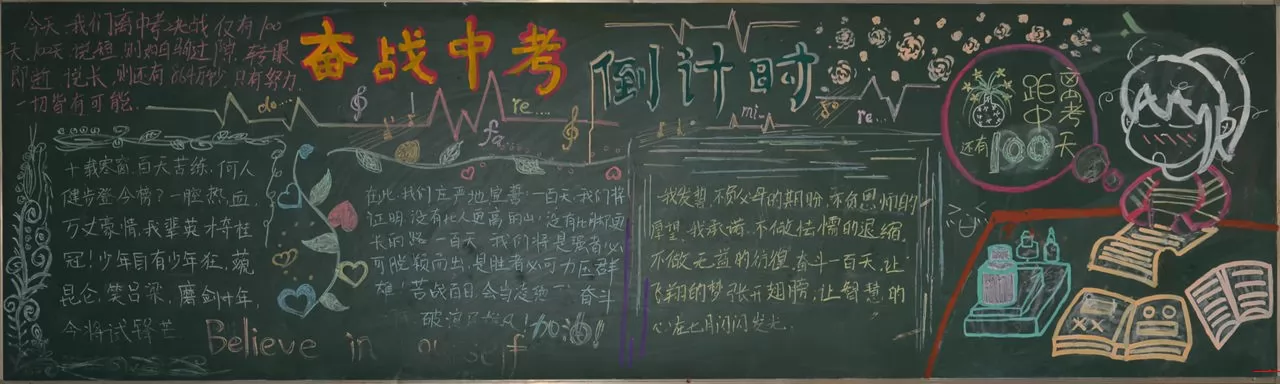 今天,我们离中考决战仅有100
天,100天说短,则如白驹过隙,转眼
即逝,说长,则还有864万秒,只有努力,
一切皆有可能.
奋战中考
倒计时
do...
re...
mi...
fa...
so
re...
距离
中考
还有100天
十载寒窗,百天苦练,何人
健步登金榜?一腔热血,
万丈豪情,我辈英才夺桂
冠!少年自有少年狂,藐
昆仑,笑吕梁,磨剑十年,
今将试锋芒
Believe in ourself
在此,我们庄严地宣誓:一百天,我们将
证明,没有比人更高的山,没有比脚更
长的路.一百天,我们将是强者,必
可脱颖而出,是胜者必可力压群
雄!苦战百日,会当凌绝 奋斗
破浪 加油!
我发誓,不负父母的期盼,不负恩师的
厚望.我承诺,不做怯懦的退缩,
不做无益的彷徨,奋斗一百天,让
飞翔的梦张开翅膀,让智慧的
在七月闪闪发光.